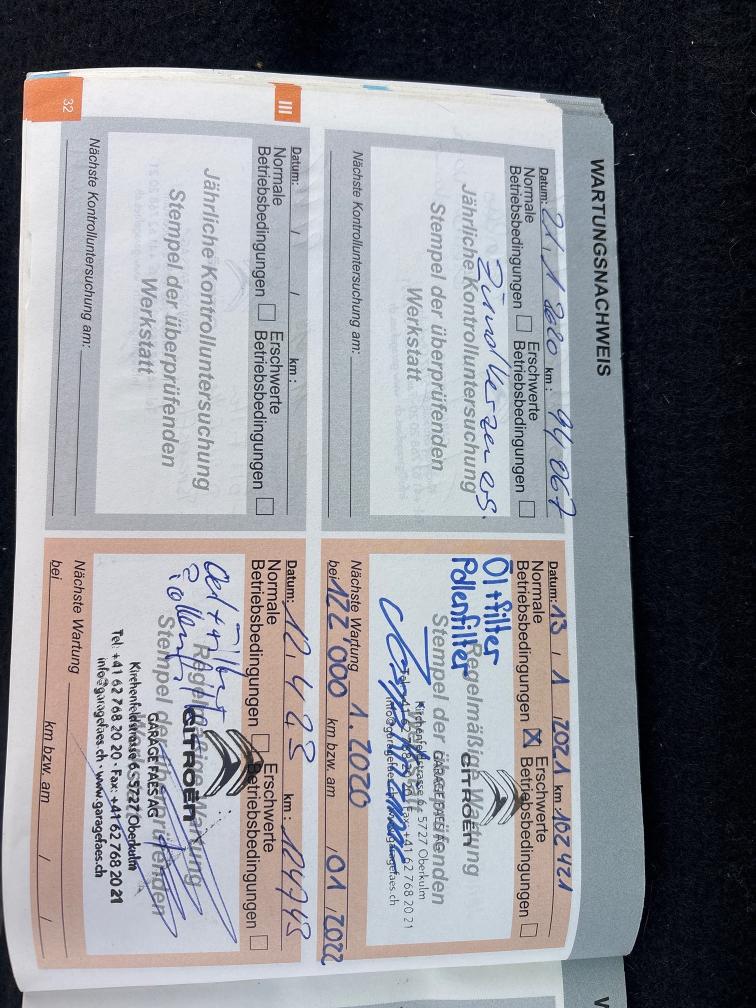 WARTUNGSNACHWEIS
Datum: 21, 1 2020 km: 94 067
Normale Betriebsbedingungen
Erschwerte Betriebsbedingungen
Zündkerzen ers.
Jährliche Kontrolluntersuchung
Stempel der überprüfenden
Werkstatt
Nächste Kontrolluntersuchung am:
Datum: 13, 1, 2021 km 102 421
Normale Betriebsbedingungen
Erschwerte Betriebsbedingungen
Öl+filter
Pollenfilter
Regelmäßige Wartung
Stempel der überprüfenden
CITROËN
GARAGE FAES AG
Kirchenfeldstrasse 6 5727 Oberkulm
Nächste Wartung 1. 2020
bei 122'000 km bzw. am , 01 / 2022
III
Datum: / / km:
Normale Betriebsbedingungen
Erschwerte Betriebsbedingungen
Jährliche Kontrolluntersuchung
Stempel der überprüfenden
Werkstatt
Nächste Kontrolluntersuchung am:
Datum: 12, 4 23 km: 124743
Normale Betriebsbedingungen
Erschwerte Betriebsbedingungen
Oel + Filter
Regelmäßige Wartung
Stempel der überprüfenden
CITROËN
GARAGE FAES AG
Kirchenfeldstrasse 6 · 5727 Oberkulm
Tel: +41 62 768 20 20 · Fax: +41 62 768 20 21
info@garagefaes.ch · www.garagefaes.ch
Nächste Wartung
bei km bzw. am / /
32